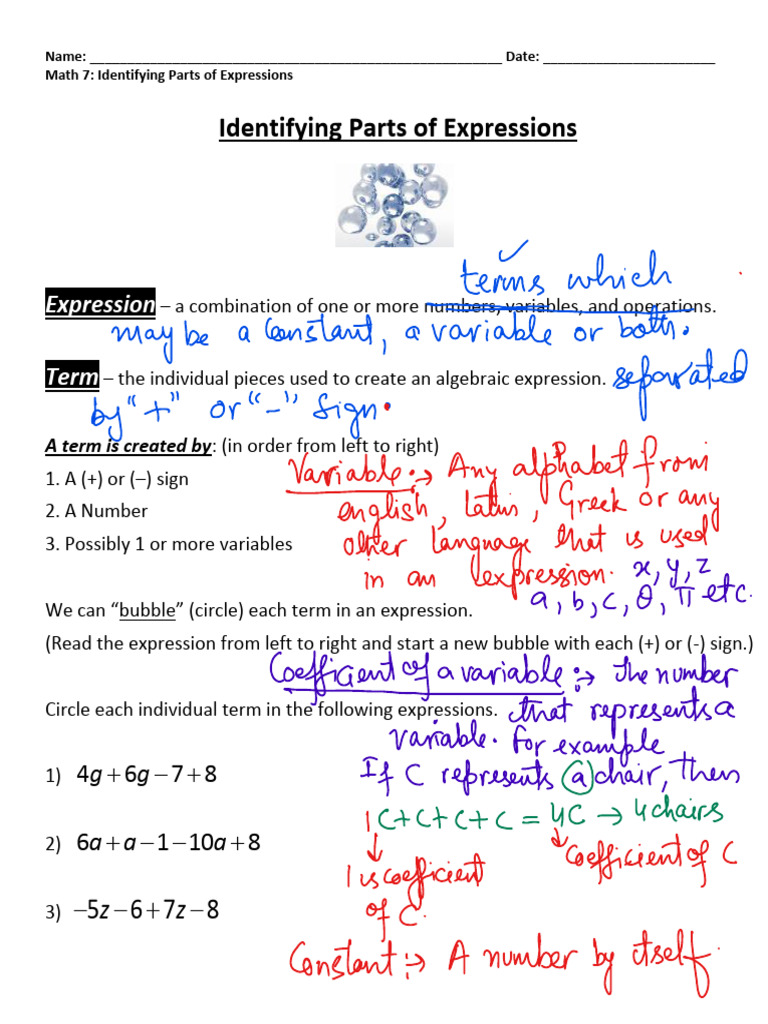 Name: ______________________________________________________ Date: ______________________
Math 7: Identifying Parts of Expressions
Identifying Parts of Expressions
terms which
Expression – a combination of one or more numbers, variables, and operations.
may be a constant, a variable or both.
Term – the individual pieces used to create an algebraic expression. separated
by "+" or "-" sign.
A term is created by: (in order from left to right)
Variable :→ Any alphabet from
1. A (+) or (–) sign
english, Latin, Greek or any
2. A Number
other language that is used
3. Possibly 1 or more variables
in an expression. x, y, z
a, b, c, θ, π etc.
We can "bubble" (circle) each term in an expression.
(Read the expression from left to right and start a new bubble with each (+) or (-) sign.)
Coefficient of a variable :→ The number
Circle each individual term in the following expressions. that represents a
variable. for example
1) 4g+6g−7+8
If C represents a chair, then
1C+C+C+C = 4C → 4 chairs
2) 6a+a−1−10a+8
coefficient of C
1 is coefficient
of C.
3) −5z−6+7z−8
Constant :→ A number by itself.